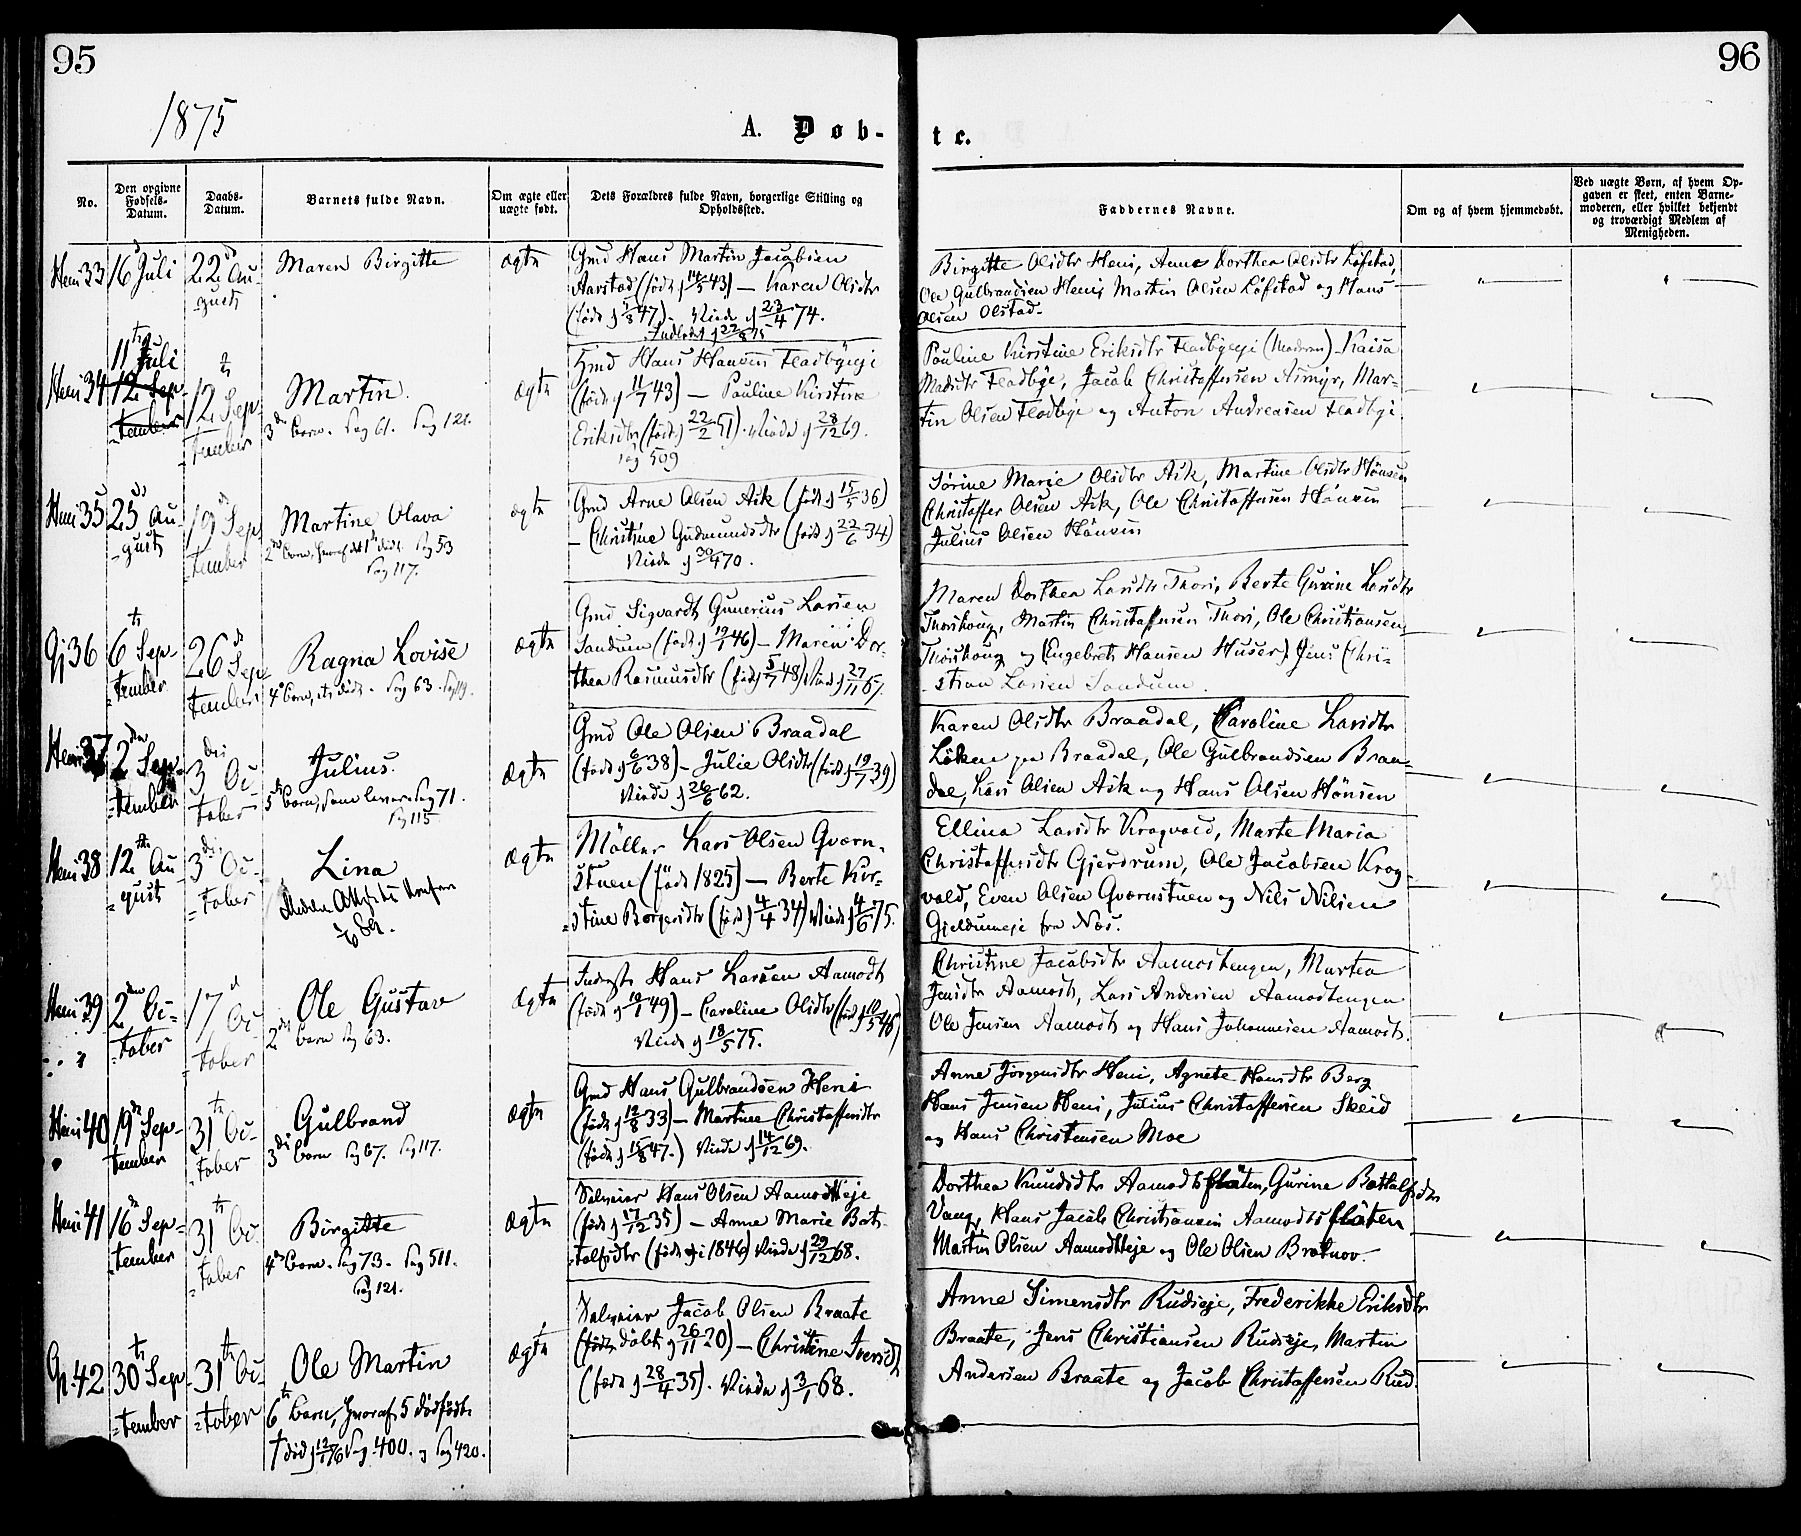 95
96
1875
A. Døb-
te.
No.
Den opgivne Fødsels-Datum.
Daabs-Datum.
Barnets fulde Navn.
Om ægte eller uægte født.
Dets Forældres fulde Navn, borgerlige Stilling og Opholdssted.
Faddernes Navne.
Om og af hvem hjemmedøbt.
Ved uægte Børn, af hvem Opgaven er skeet, enten Barnemoderen, eller hvilket bekjendt og troværdigt Medlem af Menigheden.
Heni 33
16 Juli
22 August
Maren Birgitte
ægte
Gmd Hans Martin Jacobsen
Aarstad (født 14/5 43) — Karen Olsdtr
(født 1/8 47). Viede 23/4 74.
Birgitte Olsdtr Heni, Anne Dorthea Olsdtr Løfstad,
Ole Gulbrandsen Heni, Martin Olsen Løfstad og Hans
Olsen Olstad.
Heni 34
11te Juli
12 September
12 September
Martin.
3de Barn. Pag 61. Pag 121.
ægte
Hans Hansen Fladbyeje
(født 11/7 43) — Pauline Kirstine
Eriksdtr (født 22/2 51). Viede 28/12 69.
Pag 509
Pauline Kirstine Eriksdtr Fladbyeje (Moderen) Kaisa
Madsdtr Fladbye, Jacob Christoffersen Asmyr, Mar-
tin Olsen Fladbye og Anton Andreasen Fladbye
Heni 35
25 August
19 September
Martine Olava
2det Barn, hvoraf det 1ste død. Pag 53
Pag 117.
ægte
Gmd Arne Olsen Ask (født 15/5 36)
— Christine Gudmundsdtr (født 22/6 34)
Viede 30/4 70.
Sørine Marie Olsdtr Ask, Martine Olsdtr Hønsen
Christoffer Olsen Ask, Ole Christoffersen Hønsen
Julius Olsen Hønsen
Gj 36
6te September
26de September
Ragna Lovise
4de Barn, ets død. Pag 63.
ægte
Gmd Sigvardt Gunerius Larsen
Sandum (født 19/1 46) — Maren Dor-
thea Rasmusdtr (født 5/7 48) Viede 27/11 67.
Maren Dorthea Larsdtr Thori, Berte Gurine Larsdtr
Thorskoug, Martin Christoffersen Thori, Ole Christiansen
Thorskoug og (Engebret Hansen Huser) Jens Chri-
stian Larsen Sandum.
Heni 37
2den September
3die October
Julius.
5te Barn, som lever. Pag 71.
Pag 115
ægte
Gmd Ole Olsen Braadal
(født 6/6 38) — Julie Olsdtr (født 19/7 39)
Viede 26/6 62.
Karen Olsdtr Braadal, Caroline Larsdtr
Løken paa Braadal, Ole Gulbrandsen Braa-
dal, Lars Olsen Ask og Hans Olsen Hønsen
Heni 38
12te August
3die October
Lina
ægte
Møller Lars Olsen Qværn-
stuen (født 1825) — Berte Kir-
stine Borgersdtr (født 4/4 34) Viede 4/6 75.
Ellina Larsdtr Krogvold, Marte Maria
Christoffersdtr Gjerdrum, Ole Jacobsen Krog-
vold, Even Olsen Qværnstuen og Nils Nilsen
Gjeldumeje fra Næs.
Heni 39
2den October
17de October
Ole Gustav
2det Barn Pag 63.
ægte
Inderst Hans Larsen Aamodt
(født 19/1 49) — Caroline Olsdtr (født 10/5 46)
Viede 18/5 75.
Christine Jacobsdtr Aamodtengen, Martea
Jensdtr Aamodt, Lars Andersen Aamodtengen
Ole Jensen Aamodt og Hans Johannesen Aamodt.
Heni 40
19de September
31te October
Gulbrand
3die Barn Pag 67. Pag 117.
ægte
Gmd Hans Gulbrandsen Heni
(født 12/8 33) — Martine Christoffersdtr
(født 15/8 47.) Viede 14/12 69.
Anne Jørgensdtr Heni, Agnete Hansdtr Berg
Hans Jensen Heni, Julius Christoffersen Skeid
og Hans Christensen Moe
Heni 41
16de September
31te October
Birgitte
4de Barn. Pag 73. Pag 511.
Pag 121.
ægte
Selveier Hans Olsen Aamodteje
(født 17/12 35) — Anne Marie Bot-
tolfsdtr (født i 1846) Viede 29/12 68.
Dorthea Knudsdtr Aamodtsflåten, Gurine Bottolfsdtr
Vang, Hans Jacob Christiansen Aamodtsflåten
Martin Olsen Aamodteje og Ole Olsen Bråtnov.
Gj. 42
30te September
31te October
Ole Martin
6te Barn, hvoraf 5 dødfødte
† død Pag. 400. og Pag 420.
ægte
Selveier Jacob Olsen Braate
(døbt 26/11 20) — Christine Iversdtr
(født 28/4 35). Viede 3/1 68.
Anne Simensdtr Rudseje, Frederikke Eriksdtr
Braate, Jens Christiansen Rudseje, Martin
Andersen Braate og Jacob Christoffersen Rud.